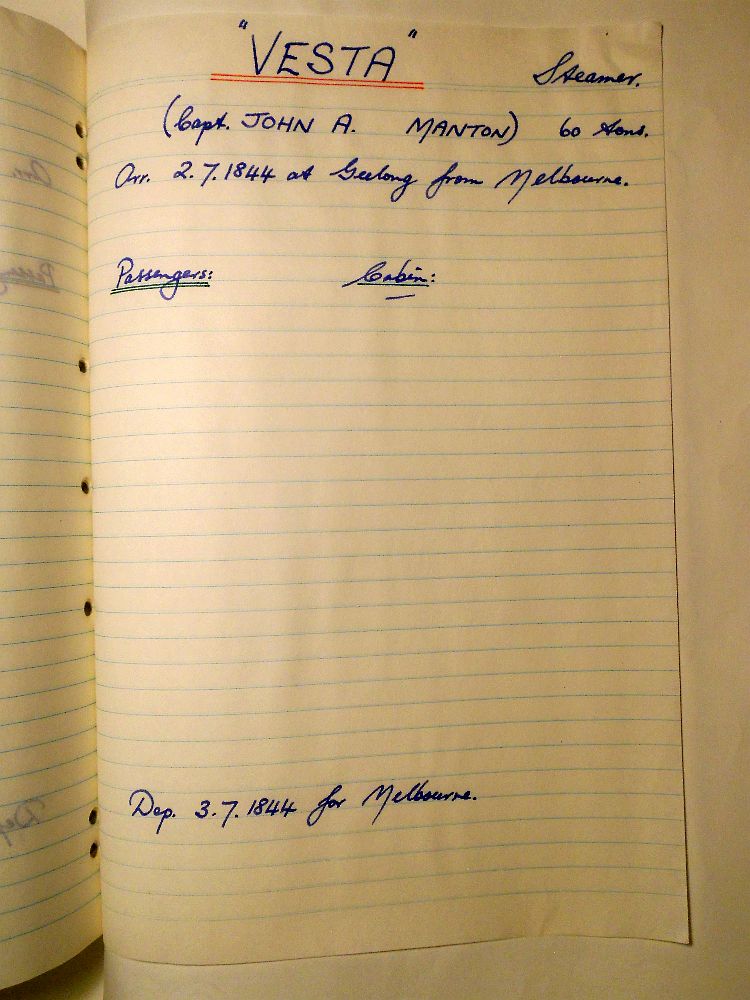 "VESTA" Steamer.
(Capt. JOHN A. MANTON) 60 tons.
Arr. 2.7.1844 at Geelong from Melbourne.
Passengers: Cabin:
—
Dep. 3.7.1844 for Melbourne.